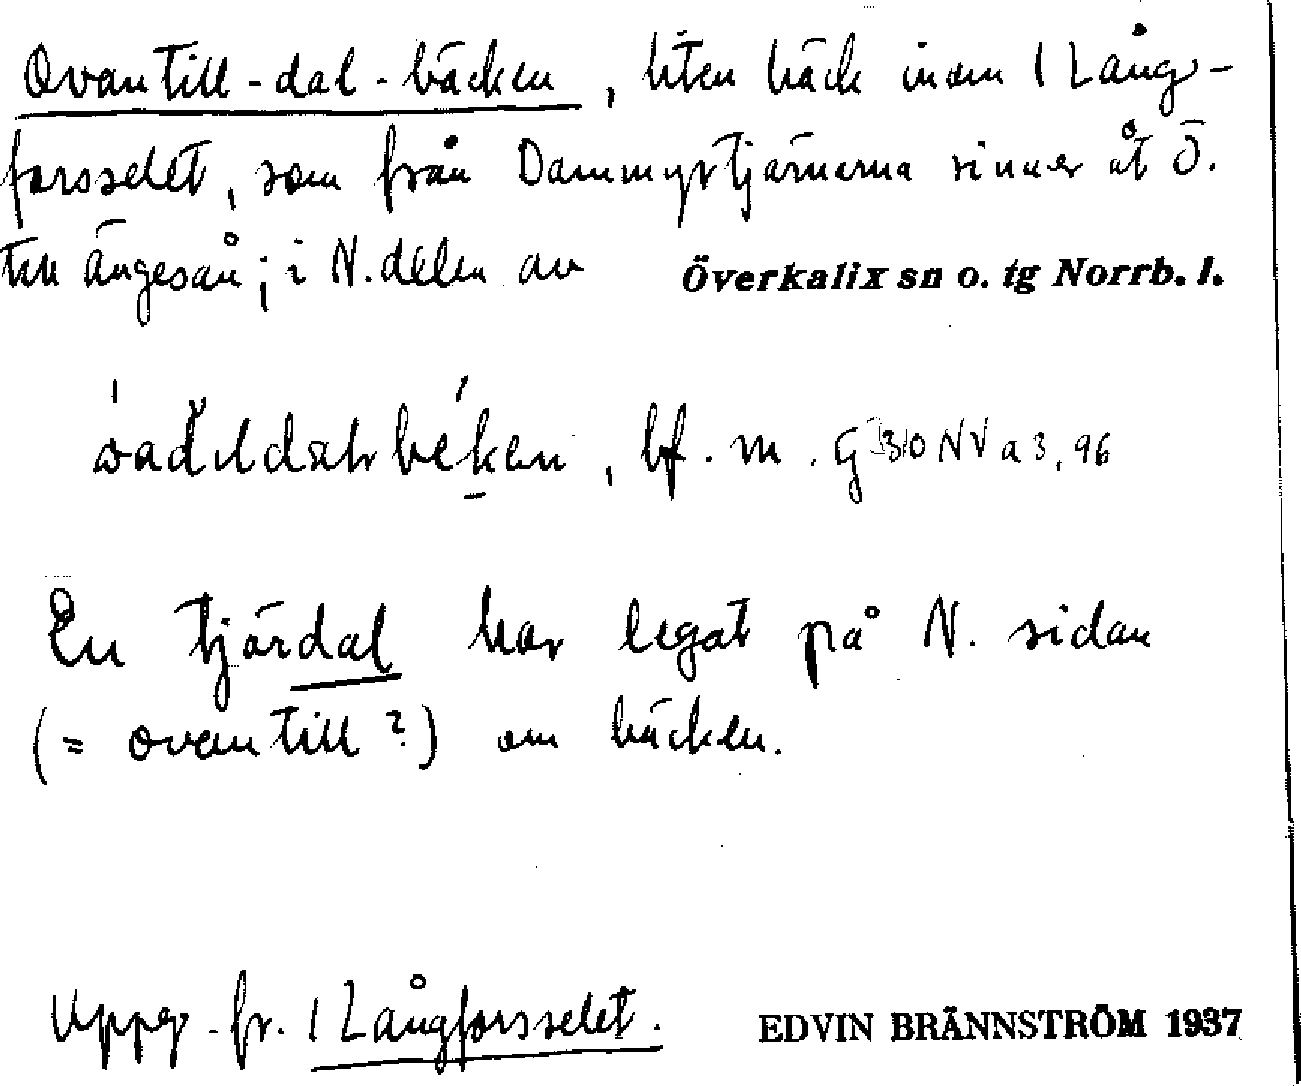 Ovantill-dal-bäcken, liten bäck inom 1 Lång-
forsselet, som från Dammyrtjärnarna rinner åt Ö.
till Ängesån; i N. delen av Överkalix sn o. tg Norrb. l.
bf. m. G 310 NV a 3, 96
En tjärdal har legat på N. sidan
(= ovantill?) om bäcken.
Uppg. fr. 1 Långforsselet. EDVIN BRÄNNSTRÖM 1937